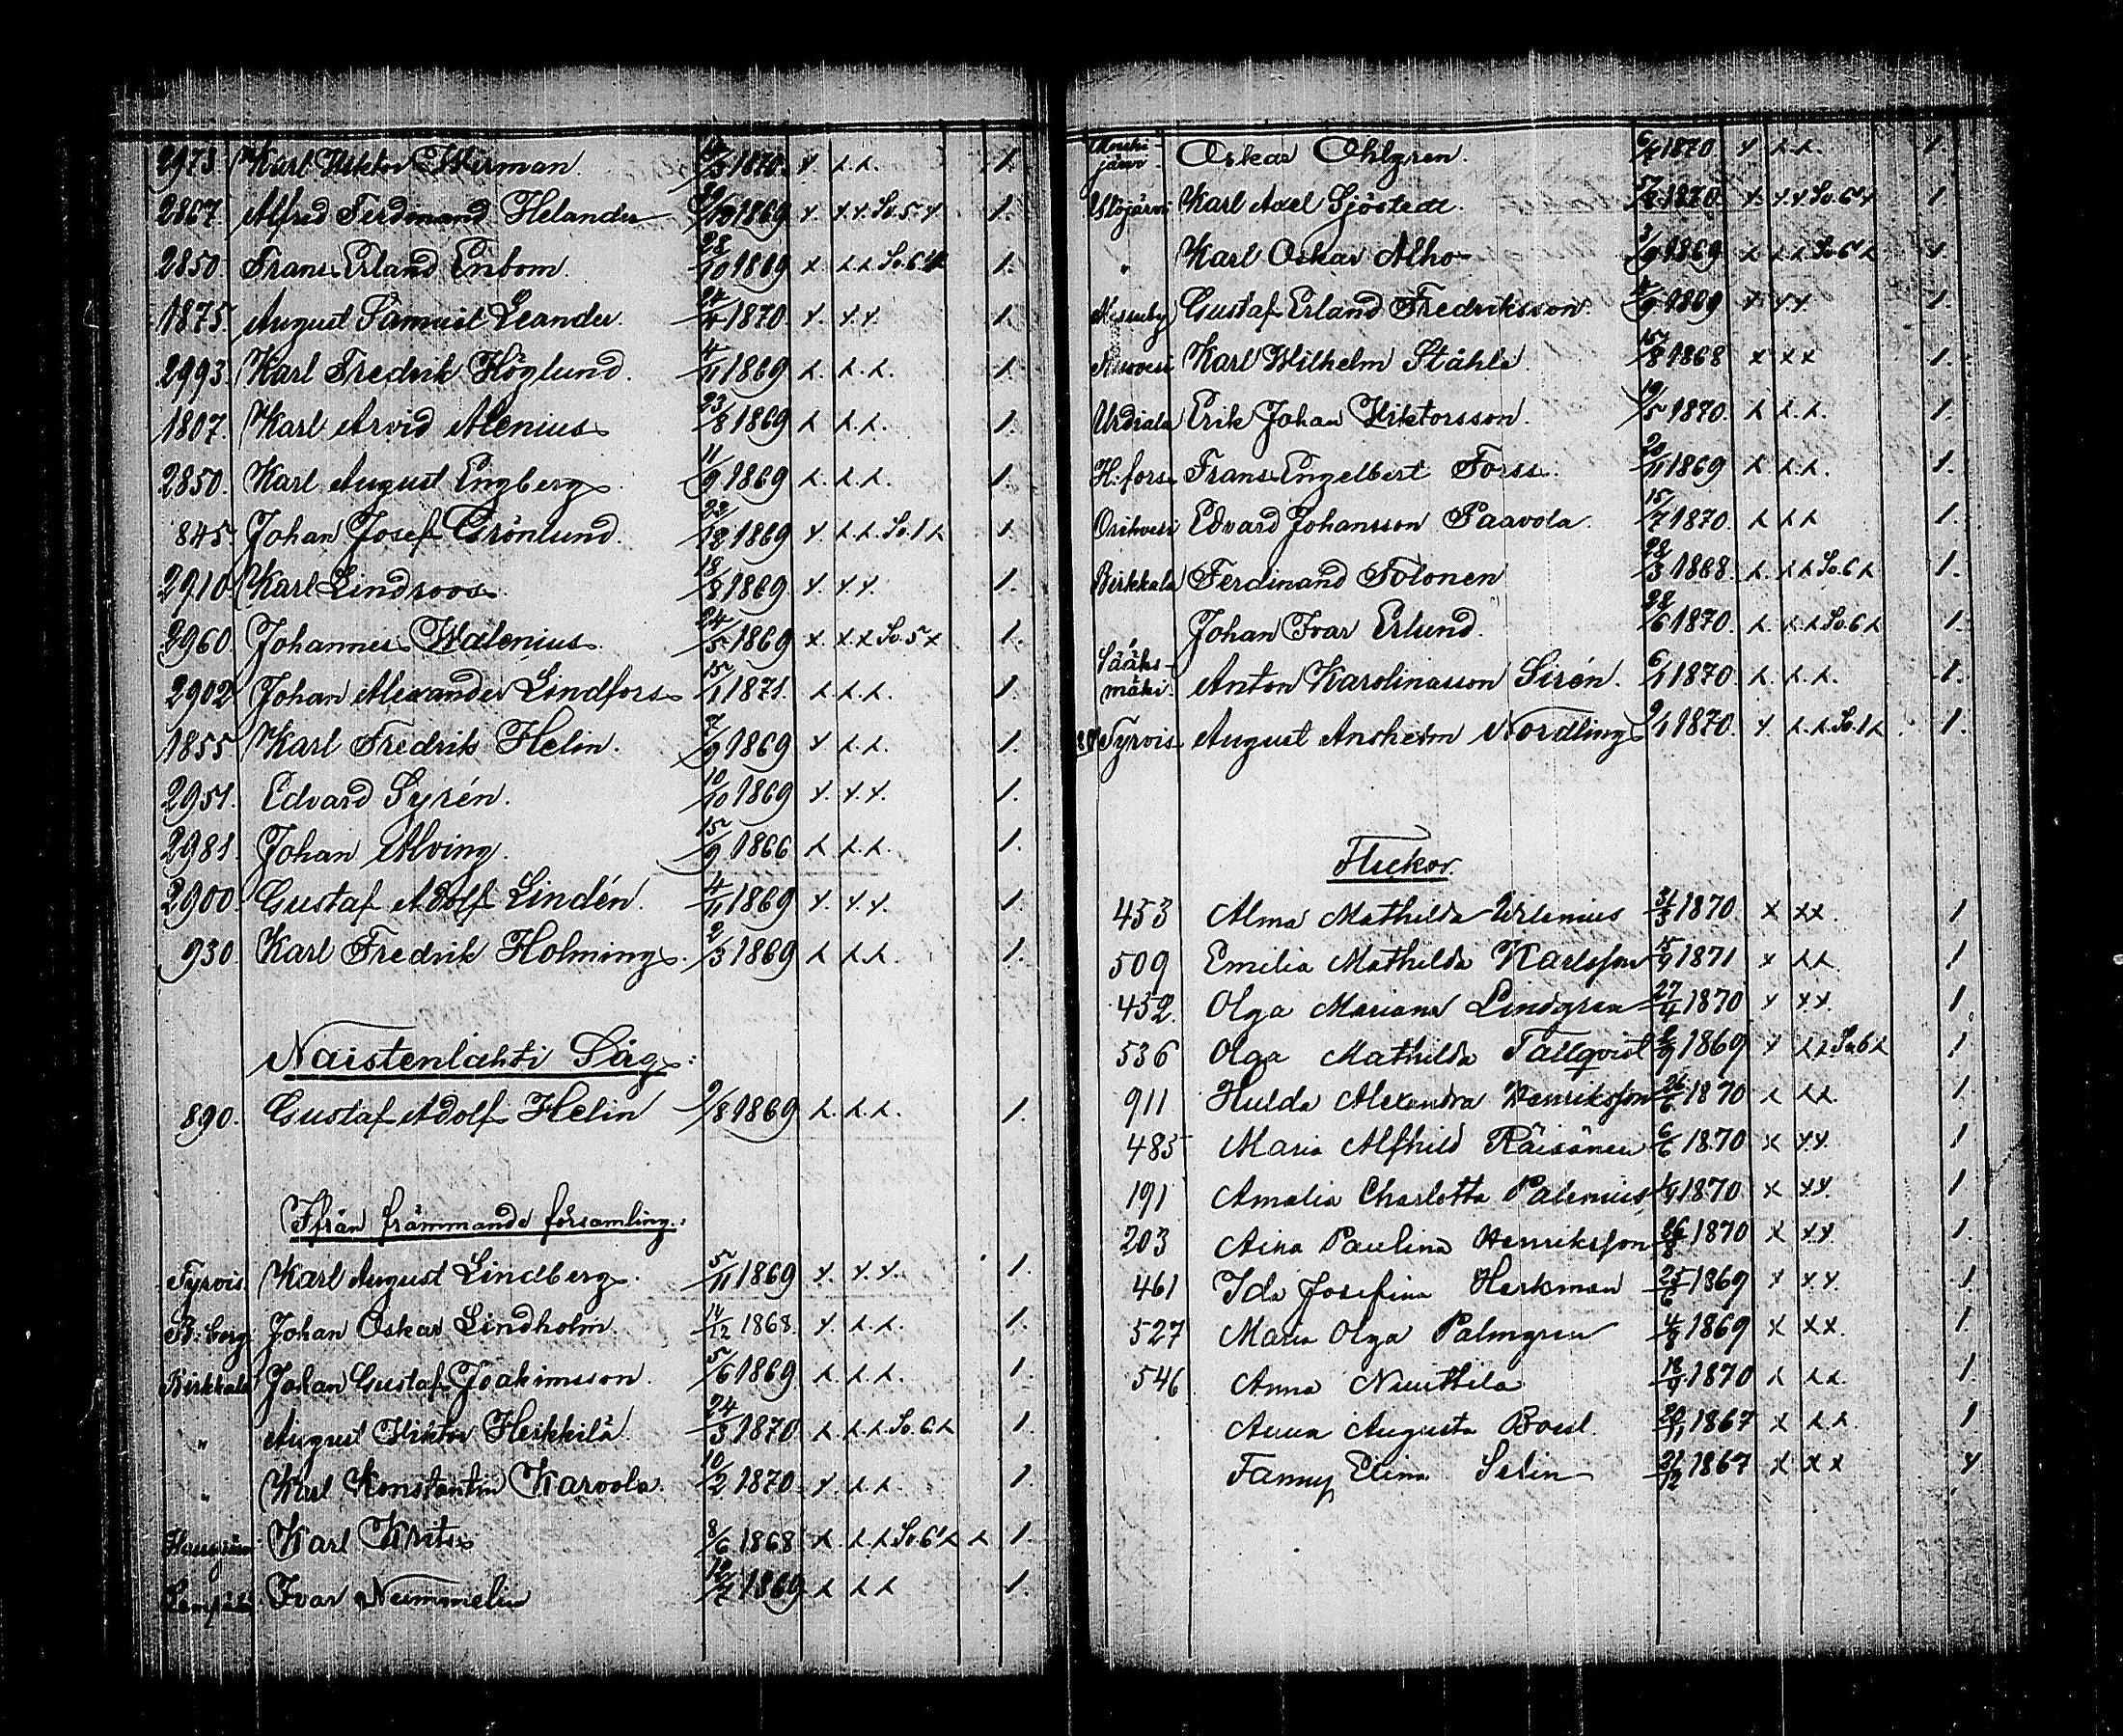 2973. Karl Viktor Wirman. 1870. x. x.x. 1.
2867. Alfred Ferdinand Helander 1869 x. x.x. So. 5. x 1.
2850 Frans Erland Enbom. 28/10 1869 x. x.x So. 6. x 1.
1875. August Samuel Leander. 24/4 1870. x. x.x. 1.
2993. Karl Fredrik Höglund. 4/11 1869 x. x.x. 1.
1807. Karl Arvid Alenius 23/8 1869 x x.x. 1.
2850. Karl August Engberg. 11/9 1869 x. x.x. 1.
845 Johan Josef Grönlund. 1869 x. x.x. So. 1 x 1.
2910 Karl Lindroos. 18/8 1869. x. x.x. 1.
2960. Johannes Walenius. 24/5 1869 x. x.x So. 5 x 1.
2902 Johan Alexander Lindfors 15/1 1871. x.x.x. 1.
1855 Karl Fredrik Helin. 7/9 1869 x x.x. 1.
2951. Edvard Syrén. 10/10 1869 x. x.x. 1.
2981. Johan Alving. 15/9 1866 x x.x. 1.
2900. Gustaf Adolf Lindén. 4/11 1869 x. x.x. 1.
930 Karl Fredrik Holming. 2/3 1869 x x.x. 1.
Naistenlahti Såg:
890. Gustaf Adolf Helin 9/8 1869 x. x.x. 1.
Ifrån främmande församling:
Tyrvis Karl August Lindberg. 5/11 1869 x. x.x. 1.
B:borg Johan Oskar Lindholm. 14/12 1868. x. x.x. 1.
Birkkala Johan Gustaf Joakimsson. 5/6 1869 x.x.x. 1.
" August Viktor Heikkilä. 24/3 1870 x x.x. So. 6. x 1.
" Karl Konstantin Karvola. 10/2 1870. x. x.x. 1.
Karl Krits 8/6 1868 x. x.x So. 6 x x 1.
Ivar Nummelin 1869 x x x 1.
Oskar Ohlgren. 1870 x x.x. 1
Ylöjärvi Karl Axel Sjöstedt. 1870. x. x.x So. 6 x 1
" Karl Oskar Alho 3/9 1869 x x.x So. 6 x 1
Messuby Gustaf Erland Fredriksson. 1869 x. x.x 1.
Karl Wilhelm Ståhle. 15/8 1868 x x x 1.
Urdiala Erik Johan Viktorsson. 19/5 1870. x x.x. 1.
H:fors Frans Engelbert Forss. 20/11 1869 x x.x. 1.
Orihvesi Edvard Johansson Paavola. 15/7 1870. x x.x 1.
Birkkala Ferdinand Tolonen 28/3 1868. x. x.x So. 6 x 1.
Johan Ivar Erlund. 28/6 1870. x. x.x So. 6 x 1.
Sääks-
mäki. Anton Karolinasson Sirén. 6/1 1870. x. x.x. 1.
Tyrvis. August Anshelm Nordling 9/1 1870. x. x.x. So. 1 x 1.
Flickor.
453 Alma Mathilda Urlenius 31/3 1870. x xx. 1
509 Emilia Mathilda Karlsson 1871 x x.x. 1
452. Olga Mariana Lindgren 27/4 1870 x x.x. 1
536 Olga Mathilda Tallqvist 1869 x x.x So 6 x 1
911 Hulda Alexandra Henriksson 26/6 1870 x x.x. 1
485 Maria Alfhild Räisänen 6/6 1870 x x.x. 1
191 Amalia Charlotta Palenius 1870 x x.x. 1
203 Aina Paulina Henriksson 26/8 1870 x x.x 1.
461 Ida Josefina Herkman 25/6 1869 x x.x. 1.
527 Maria Olga Palmgren 4/8 1869 x x x. 1.
546 Anna Niuittila 18/9 1870 x x.x. 1
Anna Augusta 1867 x x.x. 1
Fanny Elina Selin 21/12 1867 x x x x.